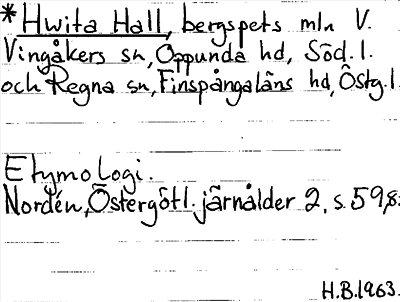 *Hwita Hall, bergspets mln V.
Vingåkers sn, Oppunda hd, Söd. l.
och Regna sn, Finspångaläns hd, Östg. l.
Etymologi.
Nordén, Östergötl. järnålder 2, s. 59,8.
H.B.1963.